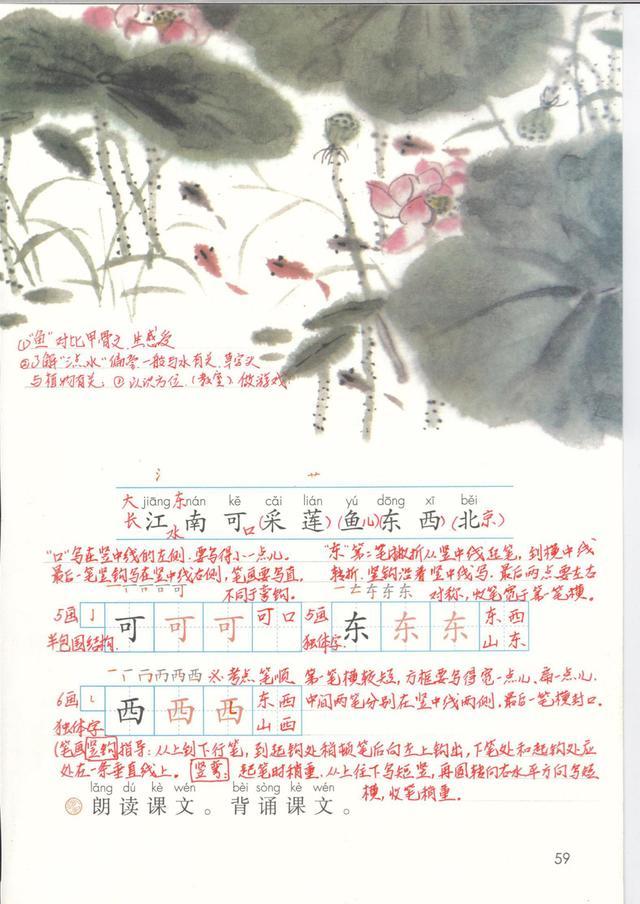 ①"鱼"对比甲骨文,生感受
②了解"三点水"偏旁一般与水有关,草字头
与植物有关; ③认识方位(教室)做游戏
氵 艹
jiāng nán kě cǎi lián yú dōng xī běi
大 东
长江 南 可(采 莲)(鱼儿)(东 西)(北京)
水 口
"口"写在竖中线的左侧.要写得小一点儿。
最后一笔竖钩写在竖中线右侧,笔画要写直,
不同于弯钩。
"东"第二笔撇折从竖中线起笔,到横中线
转折.竖钩沿着竖中线写.最后两点要左右
对称,收笔宽于第一笔横。
5画
半包围结构.
可 可 可 可口
5画
独体字.
东 东 东 东西
山东
一 丆 丙 两 西 西 ※考点:笔顺 第一笔横较短,方框要写得宽一点儿、扁一点儿.
中间两笔分别在竖中线两侧,最后一笔横封口.
6画
独体字
西 西 西 东西
山西
(笔画竖钩指导:从上到下行笔,到起钩处稍顿笔后向左上钩出,下笔处和起钩处应
处在一条垂直线上。 竖弯:起笔时稍重.从上往下写短竖,再圆转向右水平方向写短
横,收笔稍重.
lǎng dú kè wén bèi sòng kè wén
朗读课文。背诵课文。
59